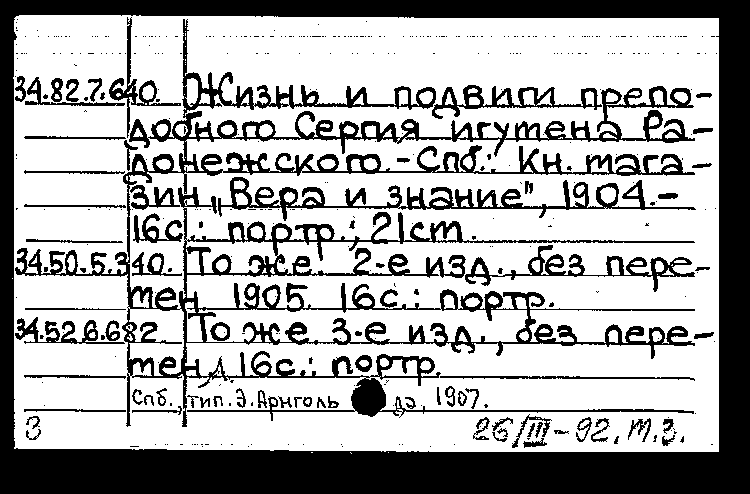 34.82.7.640. Жизнь и подвиги препо-
добного Сергия игумена Ра-
донежского. - Спб.: Кн. мага-
зин „Вера и знание", 1904. -
16с.: портр.; 21cm.
34.50.5.340. То же. 2-е изд., без пере-
мен. 1905. 16с.: портр.
34.52.6.682. То же. 3-е изд., без пере-
мен. 16с.: портр.
Спб., тип. Э. Арнголь да, 1907.
3 26/III - 92. М.З.